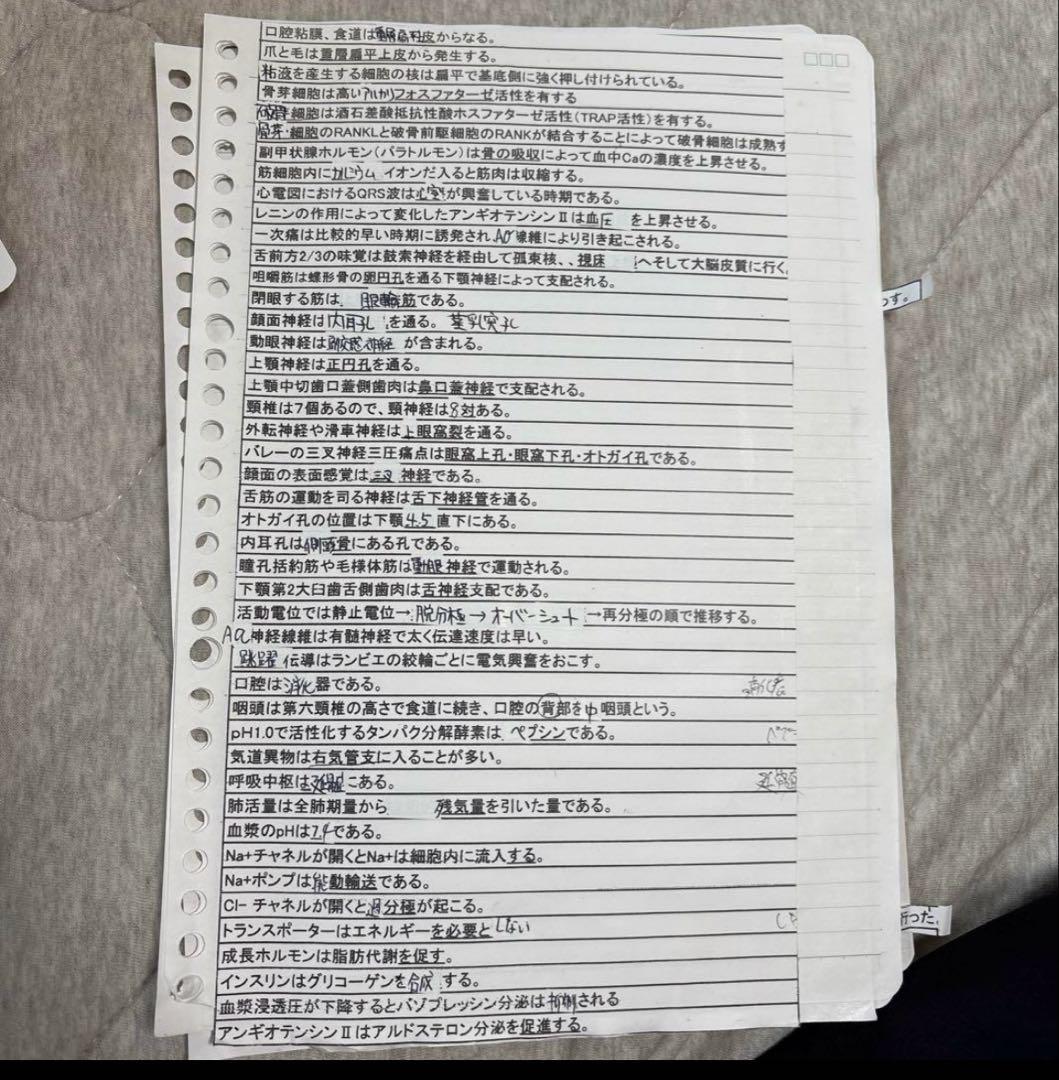 口腔粘膜、食道は重層扁平上皮からなる。
爪と毛は重層扁平上皮から発生する。
粘液を産生する細胞の核は扁平で基底側に強く押し付けられている。
骨芽細胞は高いアルカリフォスファターゼ活性を有する
破骨細胞は酒石差酸抵抗性酸ホスファターゼ活性(TRAP活性)を有する。
骨芽・細胞のRANKLと破骨前駆細胞のRANKが結合することによって破骨細胞は成熟す
副甲状腺ホルモン(パラトルモン)は骨の吸収によって血中Caの濃度を上昇させる。
筋細胞内にカルシウムイオンだ入ると筋肉は収縮する。
心電図におけるQRS波は心室が興奮している時期である。
レニンの作用によって変化したアンギオテンシンⅡは血圧を上昇させる。
一次痛は比較的早い時期に誘発されAδ線維により引き起こされる。
舌前方2/3の味覚は鼓索神経を経由して孤束核、、視床へそして大脳皮質に行く。
咀嚼筋は蝶形骨の卵円孔を通る下顎神経によって支配される。
閉眼する筋は、眼輪筋である。
つす。
顔面神経は内耳孔を通る。茎乳突孔
動眼神経は副交感神経が含まれる。
上顎神経は正円孔を通る。
上顎中切歯口蓋側歯肉は鼻口蓋神経で支配される。
頸椎は7個あるので、頸神経は8対ある。
外転神経や滑車神経は上眼窩裂を通る。
バレーの三叉神経三圧痛点は眼窩上孔・眼窩下孔・オトガイ孔である。
顔面の表面感覚は三叉神経である。
舌筋の運動を司る神経は舌下神経管を通る。
オトガイ孔の位置は下顎4.5直下にある。
内耳孔は側頭骨にある孔である。
瞳孔括約筋や毛様体筋は動眼神経で運動される。
下顎第2大臼歯舌側歯肉は舌神経支配である。
活動電位では静止電位→脱分極→オーバーシュート→再分極の順で推移する。
Aα神経線維は有髄神経で太く伝達速度は早い。
跳躍伝導はランビエの絞輪ごとに電気興奮をおこす。
口腔は消化器である。
咽頭は第六頸椎の高さで食道に続き、口腔の背部を中咽頭という。
pH1.0で活性化するタンパク分解酵素は ペプシンである。
気道異物は右気管支に入ることが多い。
呼吸中枢は延髄にある。
肺活量は全肺期量から残気量を引いた量である。
血漿のpHは7.4である。
Na+チャネルが開くとNa+は細胞内に流入する。
Na+ポンプは能動輸送である。
Cl- チャネルが開くと過分極が起こる。
トランスポーターはエネルギーを必要としない
折った、
成長ホルモンは脂肪代謝を促す。
インスリンはグリコーゲンを合成する。
血漿浸透圧が下降するとバゾプレッシン分泌は抑制される
アンギオテンシンⅡはアルドステロン分泌を促進する。